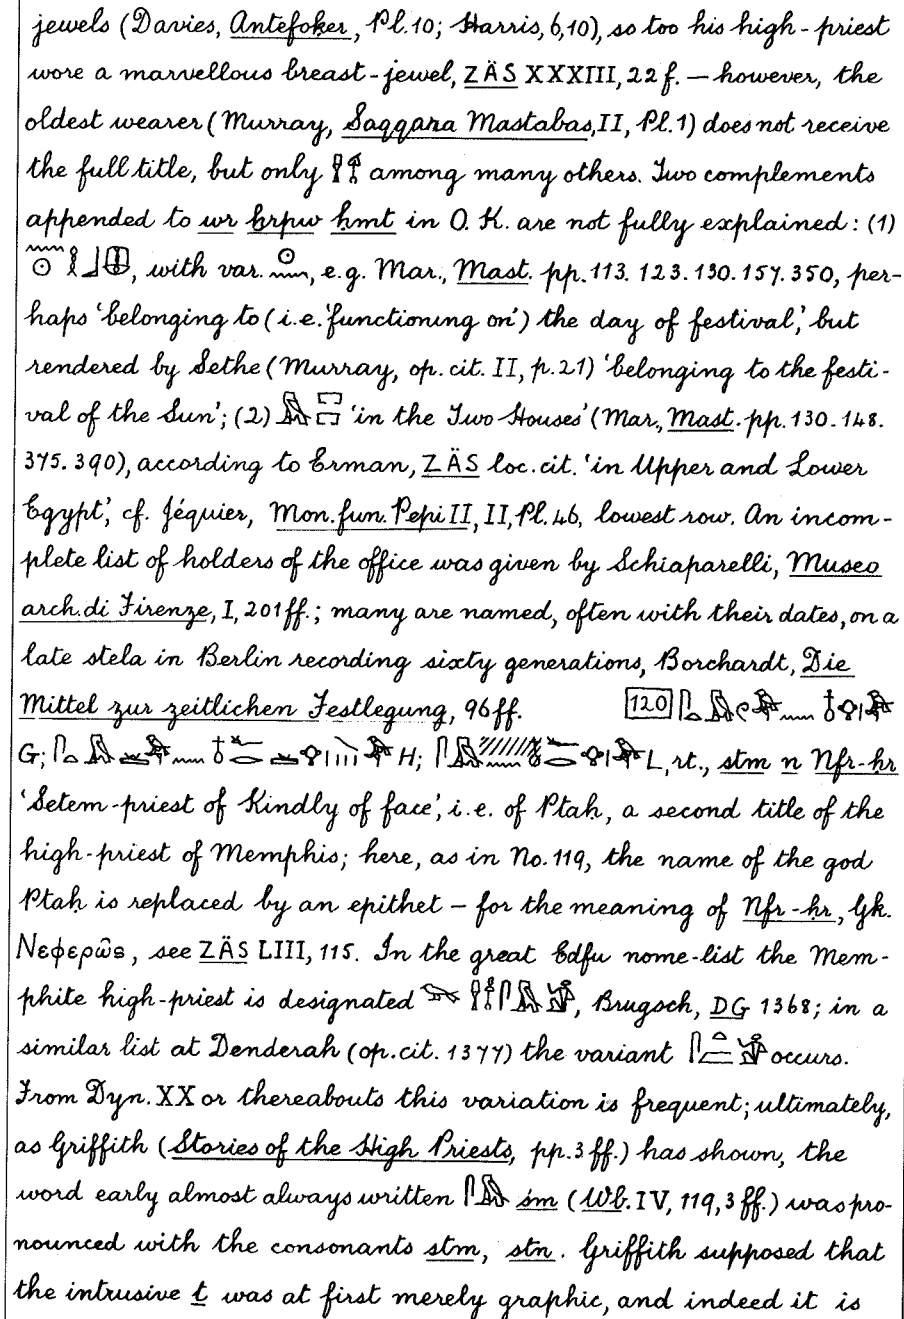 jewels (Davies, Antefoker, Pl. 10; Harris, 6, 10), so too his high-priest
wore a marvellous breast-jewel, ZÄS XXXIII, 22 f. — however, the
oldest wearer (Murray, Saqqara Mastabas, II, Pl. 1) does not receive
the full title, but only among many others. Two complements
appended to wr ḫrpw ḥmt in O. K. are not fully explained: (1)
, with var. , e.g. Mar., Mast. pp. 113. 123. 130. 157. 350, per-
haps 'belonging to (i.e. 'functioning on') the day of festival,' but
rendered by Sethe (Murray, op. cit. II, p. 21) 'belonging to the festi-
val of the Sun'; (2) 'in the Two Houses' (Mar., Mast. pp. 130. 148.
375. 390), according to Erman, ZÄS loc. cit. 'in Upper and Lower
Egypt', cf. Jéquier, Mon. fun. Pepi II, II, Pl. 46, lowest row. An incom-
plete list of holders of the office was given by Schiaparelli, Museo
arch. di Firenze, I, 201 ff.; many are named, often with their dates, on a
late stela in Berlin recording sixty generations, Borchardt, Die
Mittel zur zeitlichen Festlegung, 96 ff. 120
G; H; L, rt., stm n Nfr-ḥr
'Setem-priest of Kindly of face', i.e. of Ptaḥ, a second title of the
high-priest of Memphis; here, as in No. 119, the name of the god
Ptaḥ is replaced by an epithet — for the meaning of Nfr-ḥr, Gk.
Νεφερῶς, see ZÄS LIII, 115. In the great Edfu nome-list the Mem-
phite high-priest is designated , Brugsch, DG 1368; in a
similar list at Denderah (op. cit. 1377) the variant occurs.
From Dyn. XX or thereabouts this variation is frequent; ultimately,
as Griffith (Stories of the High Priests, pp. 3 ff.) has shown, the
word early almost always written śm (Wb. IV, 119, 3 ff.) was pro-
nounced with the consonants stm, stn. Griffith supposed that
the intrusive t was at first merely graphic, and indeed it is